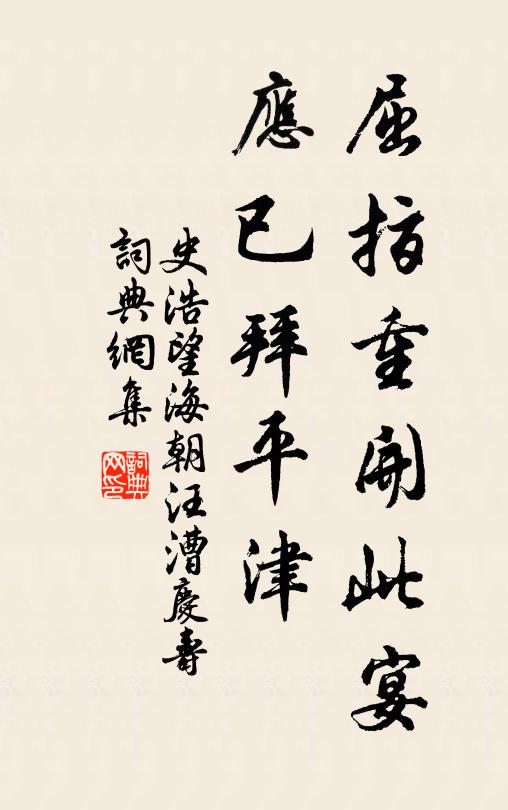 屈指重開此宴
應已拜平津
史浩望海朝汪漕慶壽
詞典網集
詞典
网印